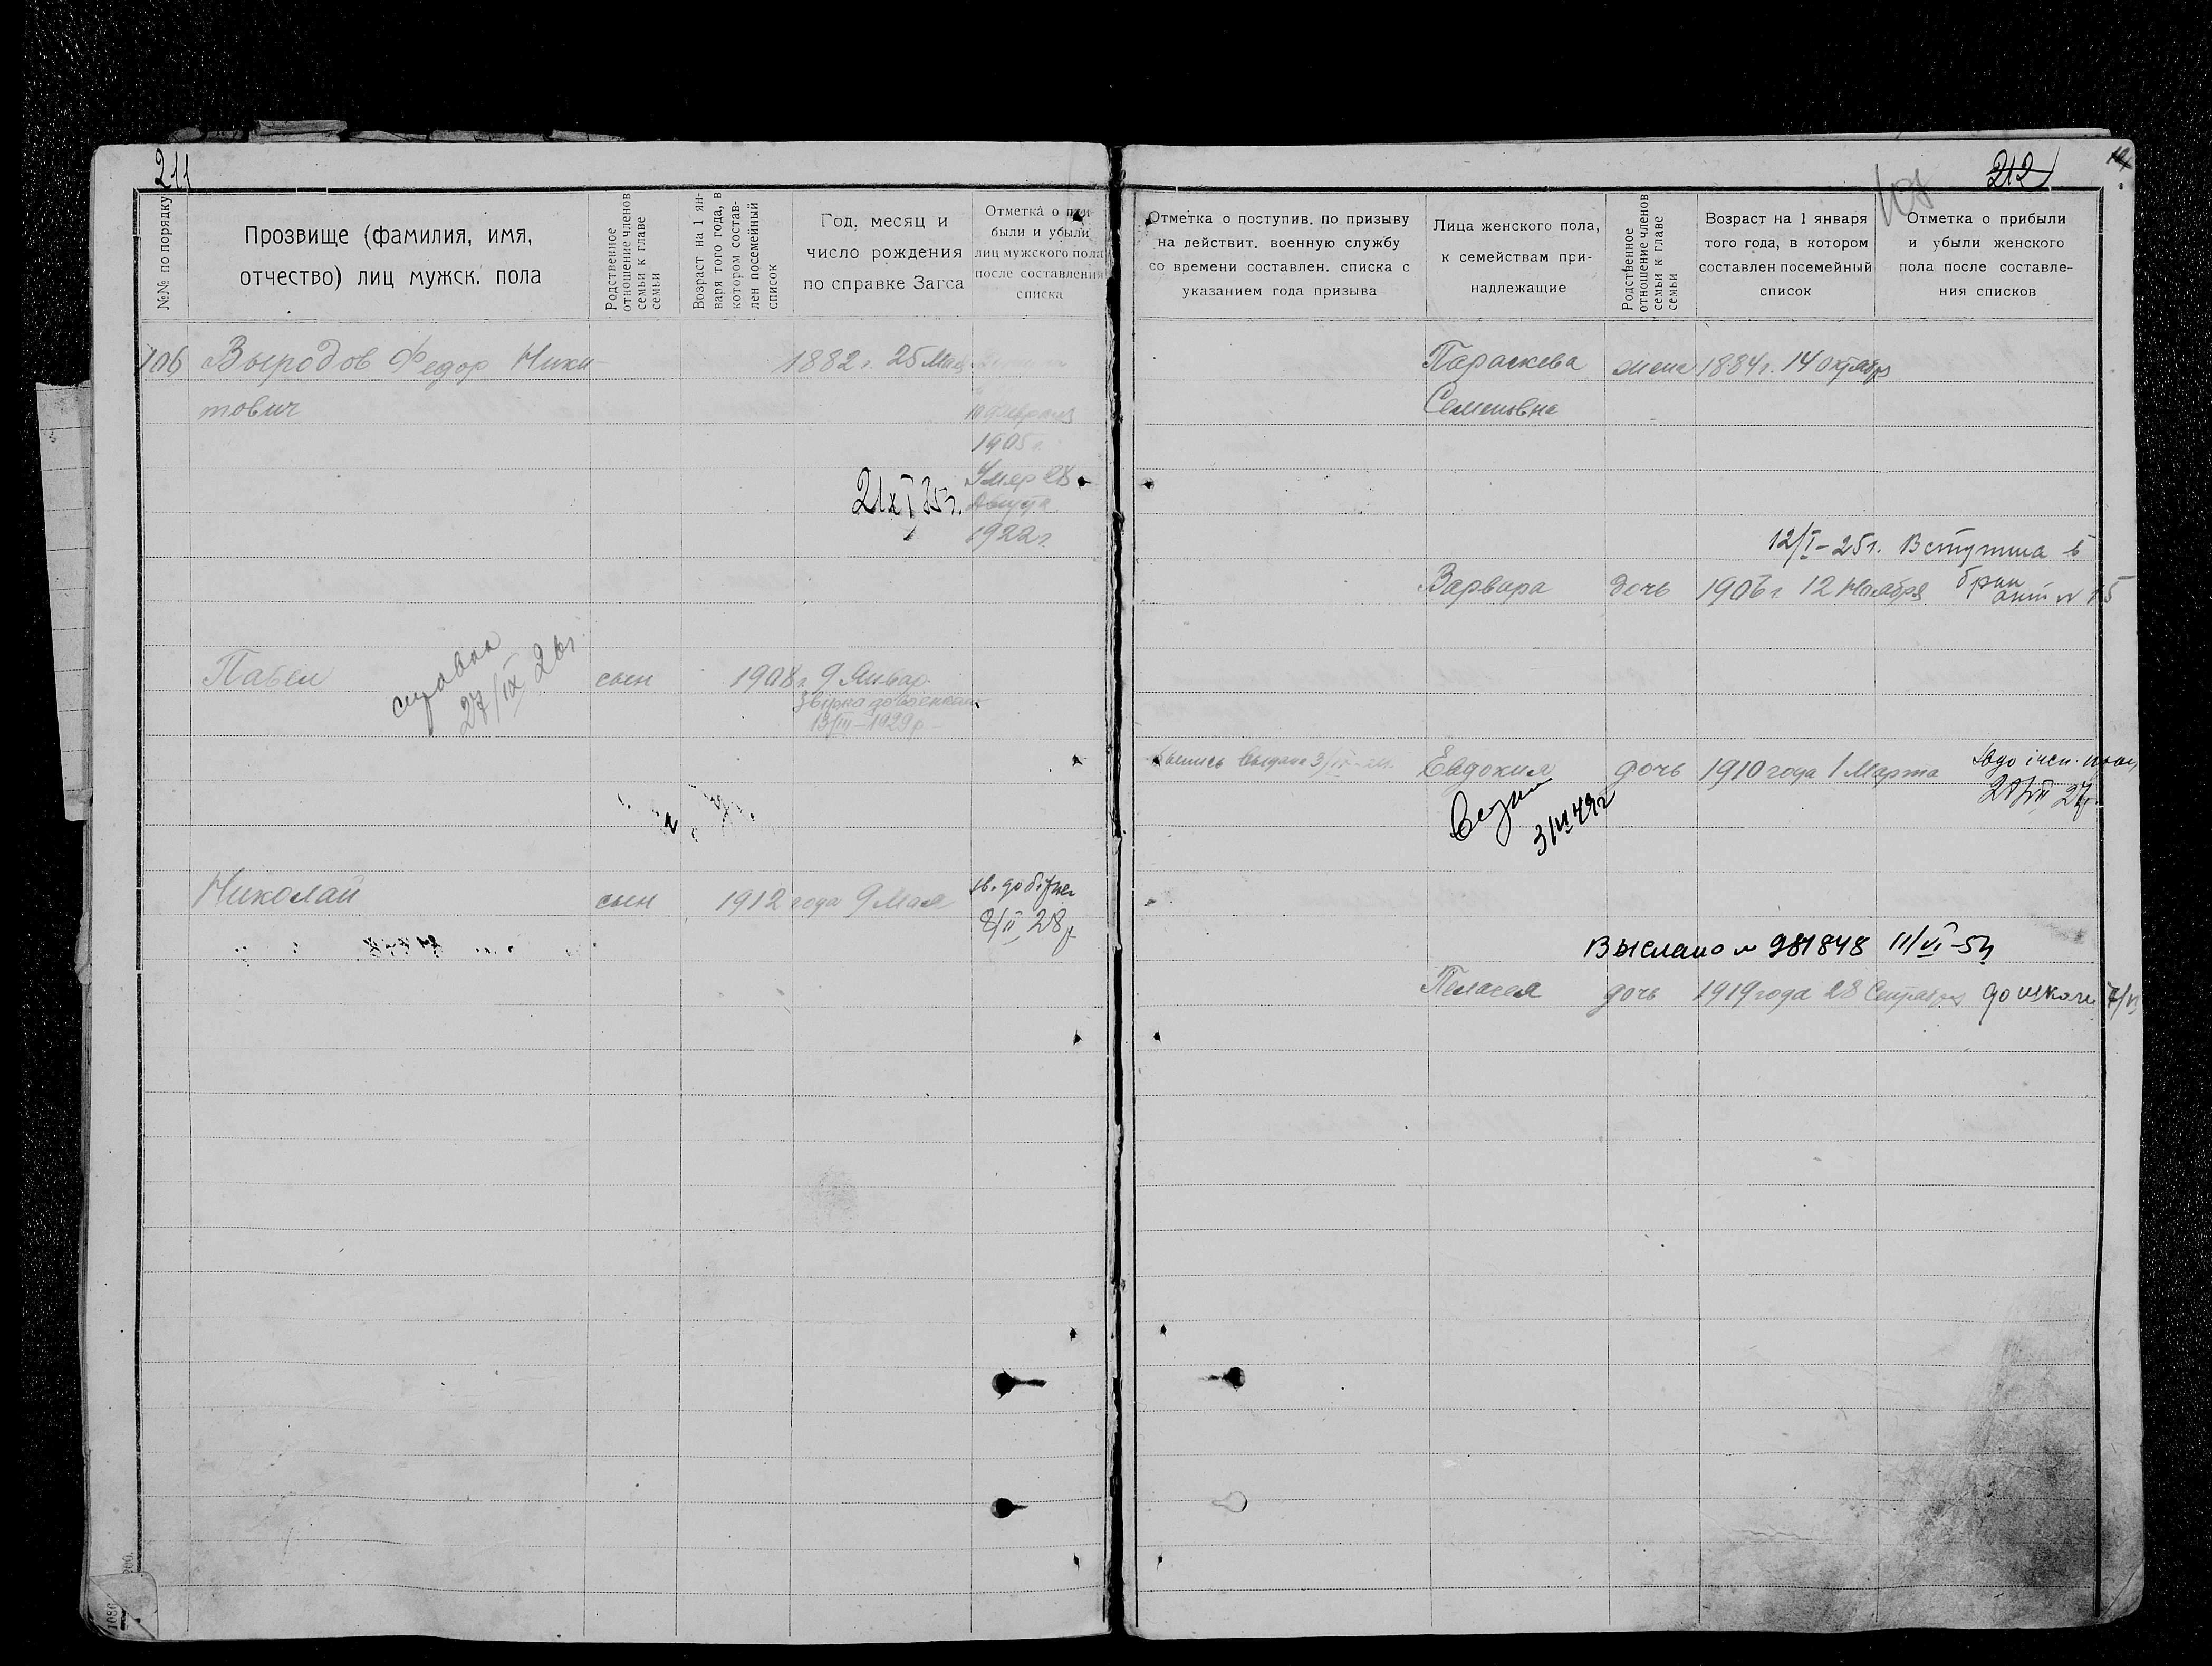 211
№№ по порядку
Прозвище (фамилия, имя,
отчество) лиц мужск. пола
Родственное
отношение членов
семьи к главе
семьи
Возраст на 1 ян-
варя того года, в
котором состав-
лен посемейный
список
Год, месяц и
число рождения
по справке Загса
Отметка о при-
были и убыли
лиц мужского пола
после составления
списка
106 Выродов Федор Ники
тович
1882 г. 25 Мая
10 Февраля
1905 г.
Умер 28
Августа
1922 г.
21 XI 25 г.
Павел
справка
27/IX 26 г.
сын
1908 г. 9 Январ.
13/III-1929 р.
Николай
сын
1912 года 9 Мая
8/II 28 р.
212
Отметка о поступив. по призыву
на действит. военную службу
со времени составлен. списка с
указанием года призыва
Лица женского пола,
к семействам при-
надлежащие
Родственное
отношение членов
семьи к главе
семьи
Возраст на 1 января
того года, в котором
составлен посемейный
список
Отметка о прибыли
и убыли женского
пола после составле-
ния списков
Параскева жена 1884 г. 14 Октября
Семеновна
12/I-25 г. Вступила в
брак
Варвара дочь 1906 г. 12 Ноября
Евдокия дочь 1910 года 1 Марта
3/VI 49 г
Выслано № 981848 11/VI-54
Пелагея дочь 1919 года 28 Сентября до школи